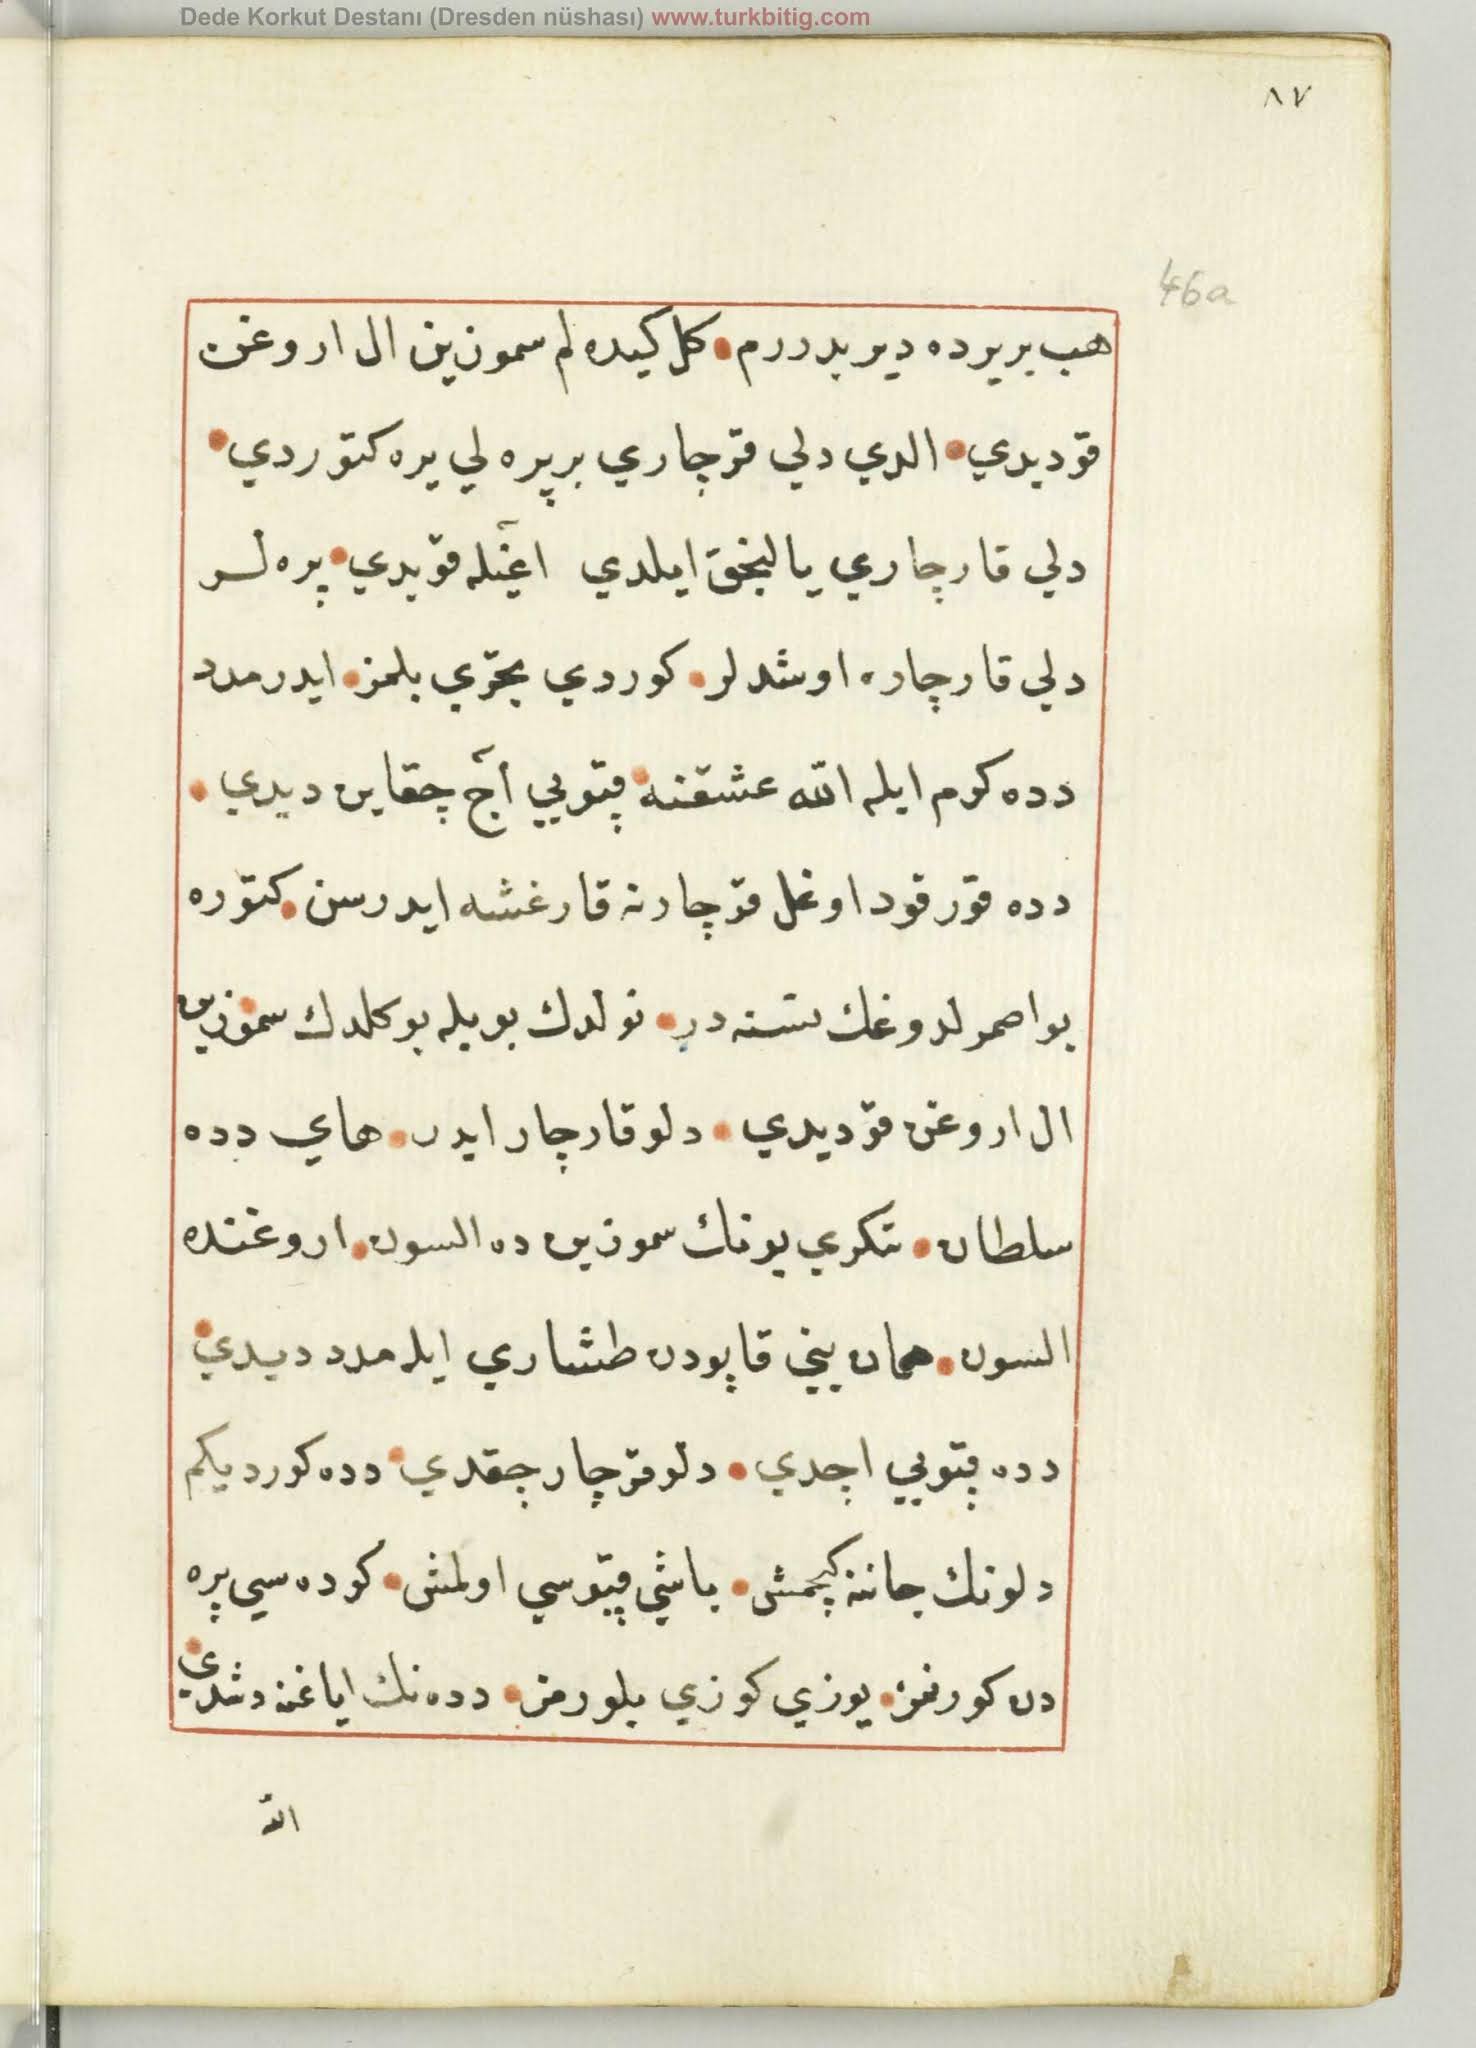 Dede Korkut Destanı (Dresden nüshası) www.turkbitig.com
٨٧
46a
هب بر يرده دير بدررم • كل كيده لم سموزين ال اروغن
قو ديدي • الدي دلي قرچاري بر پره لي يره كتوردي •
دلي قارچاري يالنجق ايلدي اغيله قويدي • پره لر
دلي قارچاره اوشدلر • كوردي بجرّي بلمز • ايدر مدد
دده كرم ايله الله عشقنه • قپويي آچ چقاين ديدي •
دده قورقود اوغل قرچار نه قارغشه ايدرسن • كتوره
بو اصمرلدوغك نسنه در • نولدك بويله بوكلدك سموزين
ال اروغن قو ديدي • دلو قارچار ايدر • هاي دده
سلطان • تنكري يونك سموزين ده السون • اروغنده
السون • همان بيني قاپودن طشاري ايله مدد ديدي •
دده قپويي اچدي • دلو قرچار چقدي • دده كورديكم
دلونك جاننه كچمش • باشي قپوسي اولمش • كوده سي پره
دن كورنمز • يوزي كوزي بلورمز • دده نك اياغنه دشدي •
الله